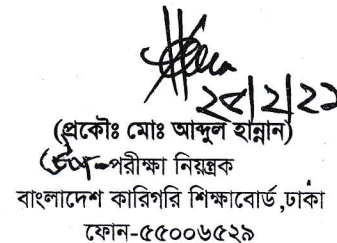 ২৫/২/২১
(প্রকৌঃ মোঃ আব্দুল হান্নান)
উপ-পরীক্ষা নিয়ন্ত্রক
বাংলাদেশ কারিগরি শিক্ষাবোর্ড,ঢাকা
ফোন-৫৫০০৬৫২৯